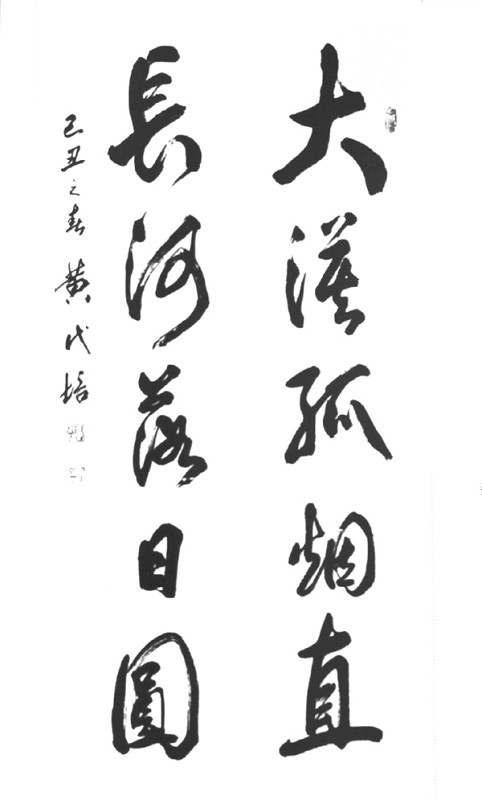 大漠孤烟直
長河落日圓
己丑之春 黄代培